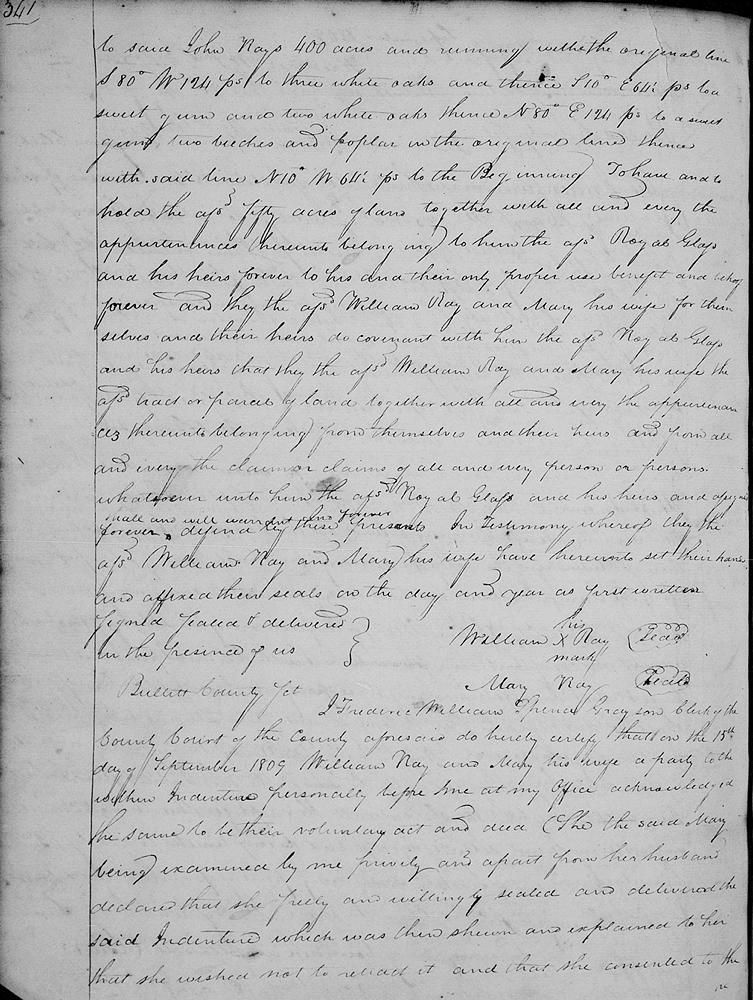 341
to said John Rays 400 acres and running with the original line
S 80° W 124 ps to three white oaks and thence S 10° E 64½ ps to a
sweet gum and two white oaks thence N 80° E 124 ps to a sweet
gum two beches and poplar in the original line thence
with said line N 10° W 64½ ps to the Beginning To have and to
hold the afsd fifty acres of land together with all and every the
appurtenances thereunto belonging to him the afsd Royal Glass
and his heirs forever to his and their only proper use benefit and behoof
forever and they the afsd William Ray and Mary his wife for them
selves and their heirs do covenant with him the afsd Royal Glass
and his heirs that they the afsd William Ray and Mary his wife the
afsd tract or parcel of land together with all and every the appurtenan
ces thereunto belonging from themselves and their heirs and from all
and every the claim or claims of all and every person or persons
whatsoever unto him the afsd Royal Glass and his heirs and assigns
shall and will warrant and forever
forever defend by these presents In Testimony whereof they the
afsd William Ray and Mary his wife have hereunto set their hands
and affixed their seals on the day and year as first written
Signed Sealed & delivered
in the presence of us
his
William X Ray Seal
mark
Mary Ray Seal
Bullitt County Sct
I Frederic William Spence Grayson Clerk of the
County Court of the County aforesaid do hereby certify that on the 15th
day of September 1809 William Ray and Mary his wife a party to the
within Indenture personally before me at my Office acknowledged
the same to be their voluntary act and deed (She the said Mary
being) examined by me privily and apart from her husband
declared that she freely and willingly sealed and delivered the
said Indenture which was then shewn and explained to her
that she wished not to retract it and that she consented to the